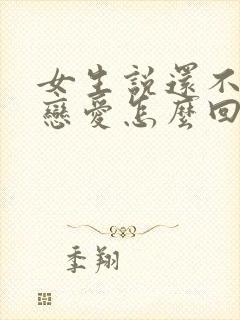 女生説還不
戀愛怎麼回
季翔